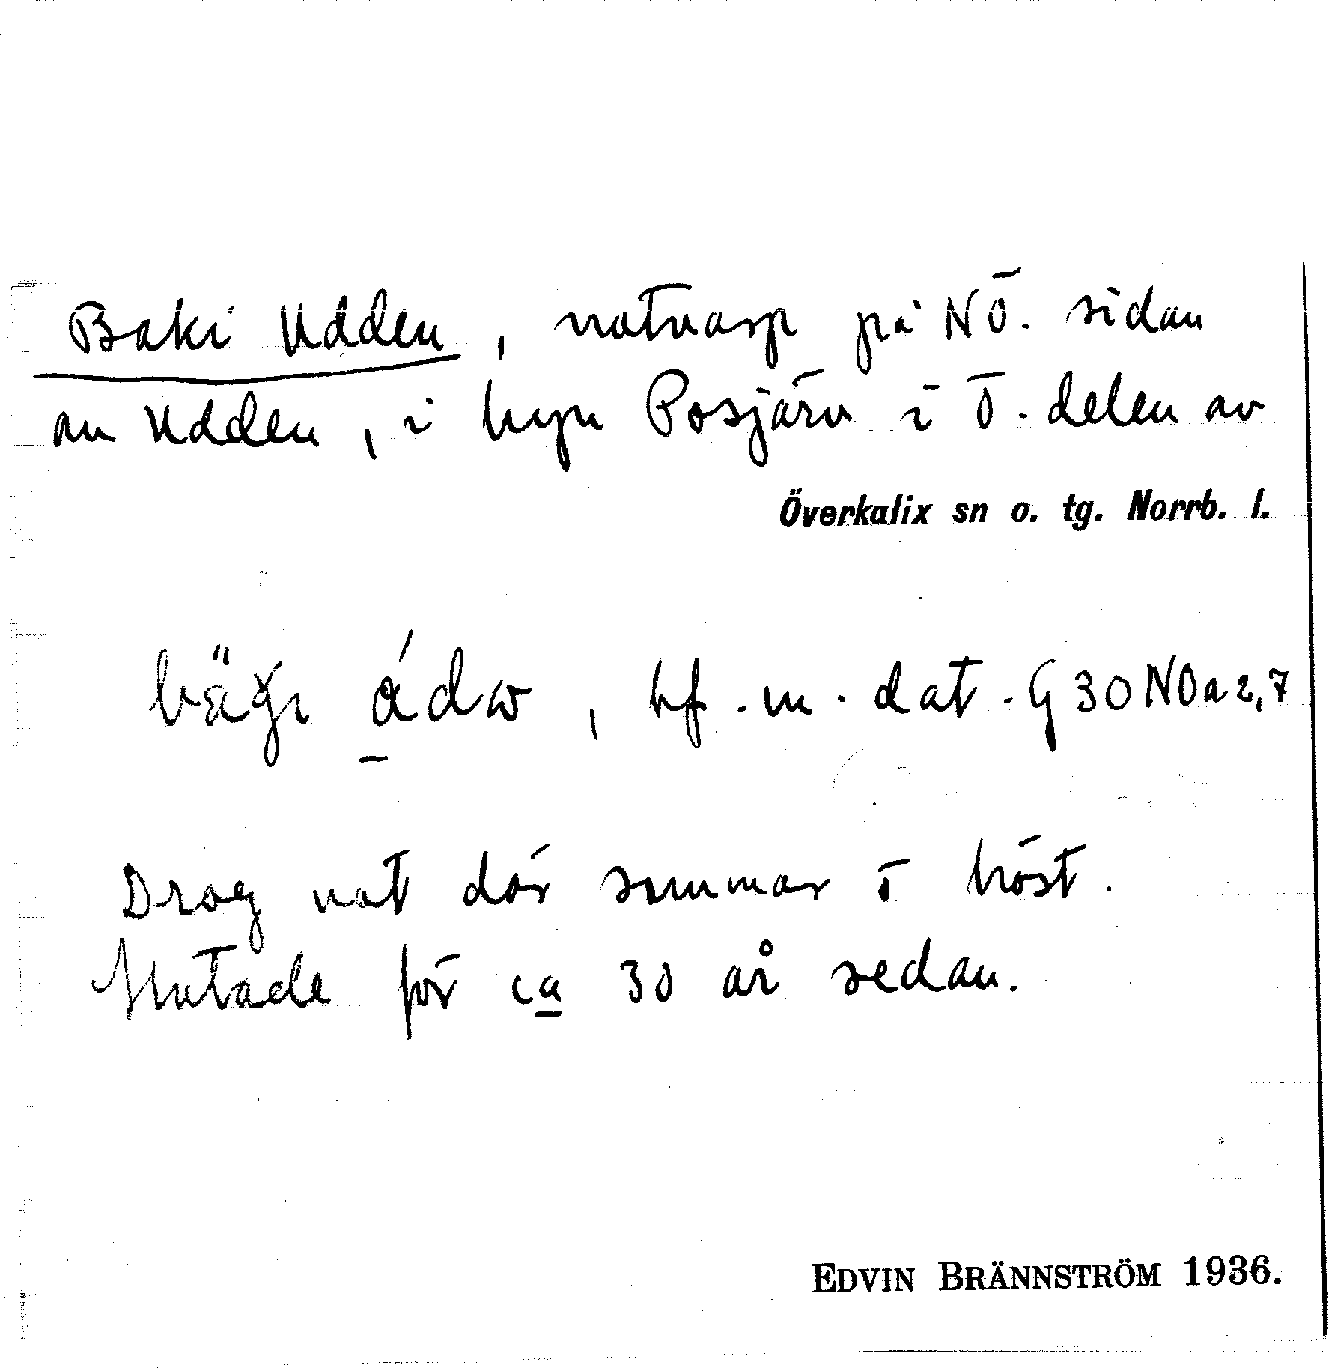 Baki Udden, notvarp på NÖ. sidan
av Udden, i byn Posjärv i Ö. delen av
Överkalix sn o. tg. Norrb. l.
hf. m. dat. G 30 NO a 2,7
Drog not där sommar ö höst.
Slutade för ca 30 år sedan.
EDVIN BRÄNNSTRÖM 1936.